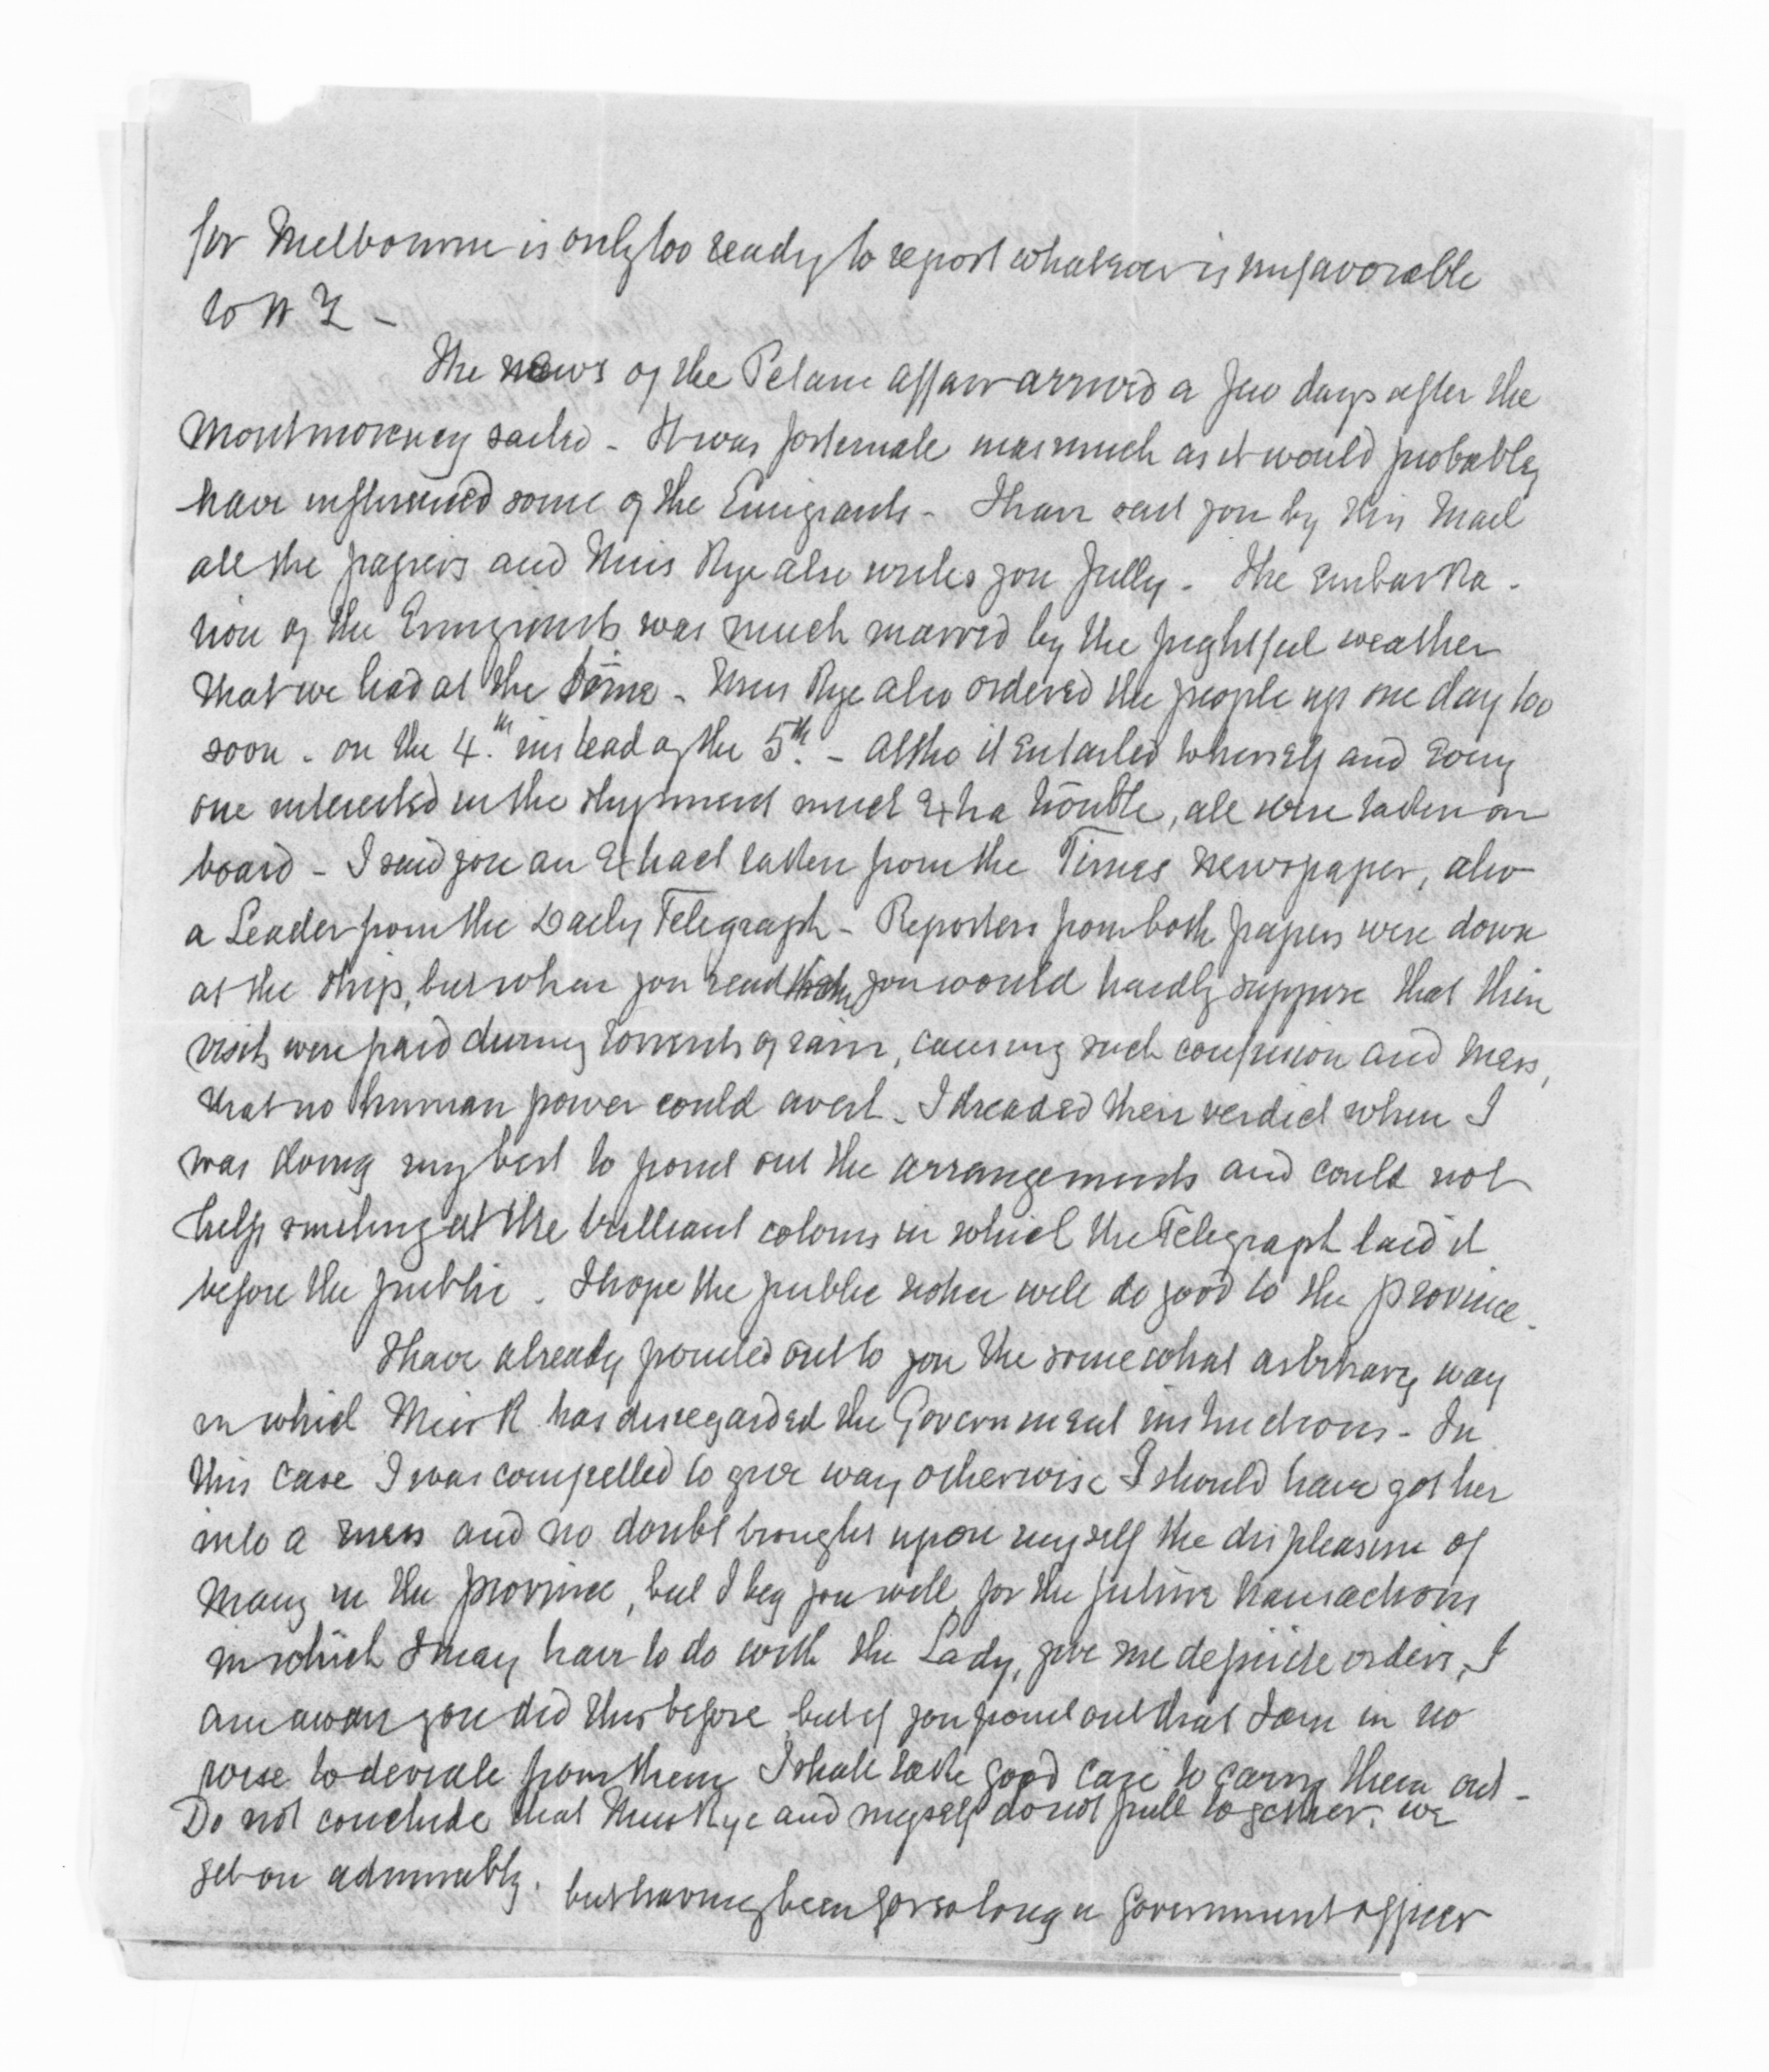 for Melbourne is only too ready to report whatever is unfavorable
to N Z -
The news of the Petane affair arrived a few days after the
Montmorency sailed - It was fortunate inasmuch as it would probably
have influenced some of the Emigrants - I have sent you by this Mail
all the papers and Miss Rye also writes you fully - The Embarka-
tion of the Emigrants was much marred by the frightful weather
that we had at the time - Miss Rye also ordered the people up one day too
soon - on the 4.th instead of the 5th. - altho it entailed to herself and every
one interested in the shipment much extra trouble, all were taken on
board - I send you an Extract taken from the Times newspaper, also
a Leader from the Daily Telegraph - Reporters from both papers were down
at the ship, but when you read them you would hardly suppose that their
visits were paid during torrents of rain, causing such confusion and mess,
that no human power could avert - I dreaded their verdict when I
was doing my best to point out the arrangements and could not
help smiling at the brilliant colours in which the Telegraph laid it
before the public - I hope the public notice will do good to the province -
I have already pointed out to you the somewhat arbitrary way
in which Miss R has disregarded the Government instructions - In
this case I was compelled to give way otherwise I should have got her
into a mess and no doubt brought upon myself the displeasure of
many in the province, but I beg you will, for the future transactions
in which I may have to do with the Lady, give me definite orders, I
am aware you did this before but if you point out that I am in no
wise to deviate from them I shall take good care to carry them out -
Do not conclude that Miss Rye and myself do not pull together, we
get on admirably. but having been for so long a Government officer